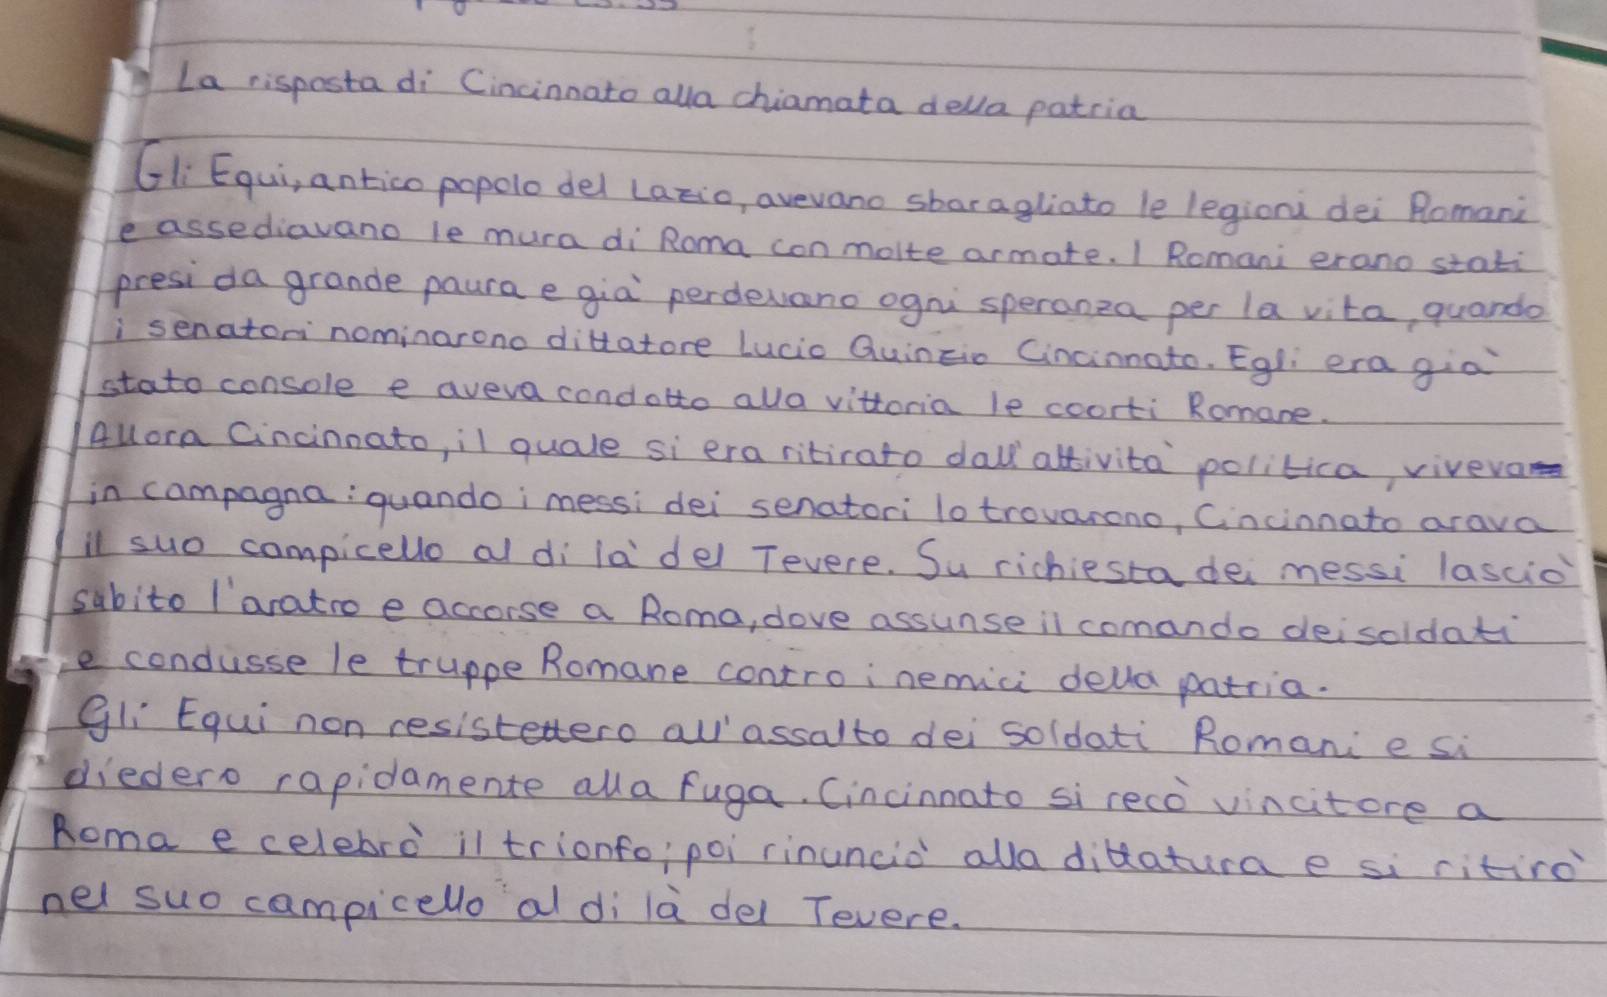 La risposta di Cincinnato alla chiamata della patria
Gli Equi, antico popolo del Lazio, avevano sbaragliato le legioni dei Romani
e assediavano le mura di Roma con molte armate. I Romani erano stati
presi da grande paura e già perdevano ogni speranza per la vita, quando
i senatori nominarono dittatore Lucio Quinzio Cincinnato. Egli era già
stato console e aveva condotto alla vittoria le coorti Romane.
Allora Cincinnato, il quale si era ritirato dall'attività politica, viveva
in campagna: quando i messi dei senatori lo trovarono, Cincinnato arava
il suo campicello al di là del Tevere. Su richiesta dei messi lasciò
subito l'aratro e accorse a Roma, dove assunse il comando dei soldati
e condusse le truppe Romane contro i nemici della patria.
Gli Equi non resistettero all'assalto dei soldati Romani e si
diedero rapidamente alla fuga. Cincinnato si recò vincitore a
Roma e celebrò il trionfo; poi rinunciò alla dittatura e si ritirò
nel suo campicello al di là del Tevere.